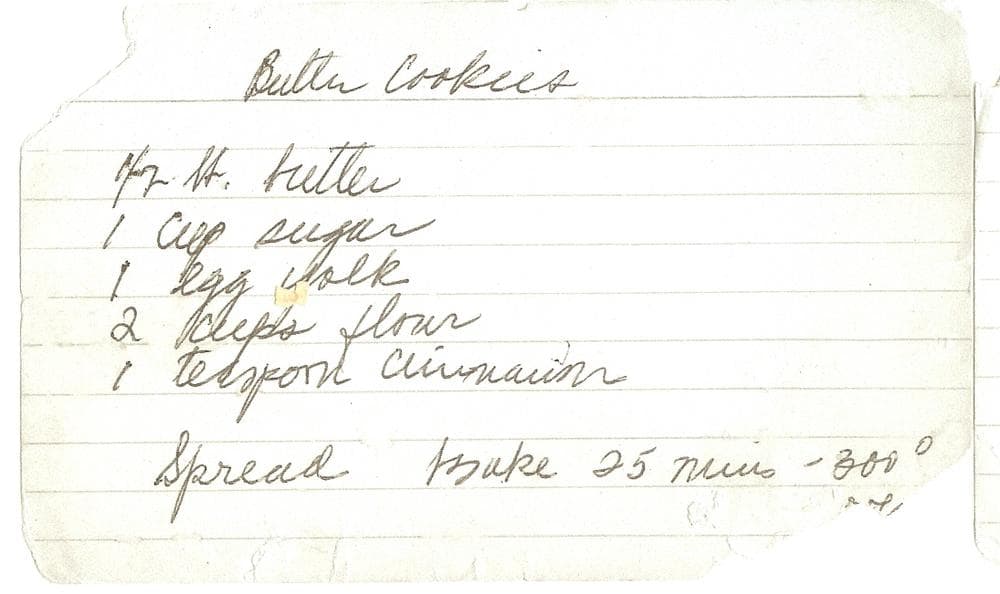 Butter Cookies
1/2 lb. butter
1 cup sugar
1 egg yolk
2 cups flour
1 teaspoon cinnamon
Spread bake 25 mins - 300°